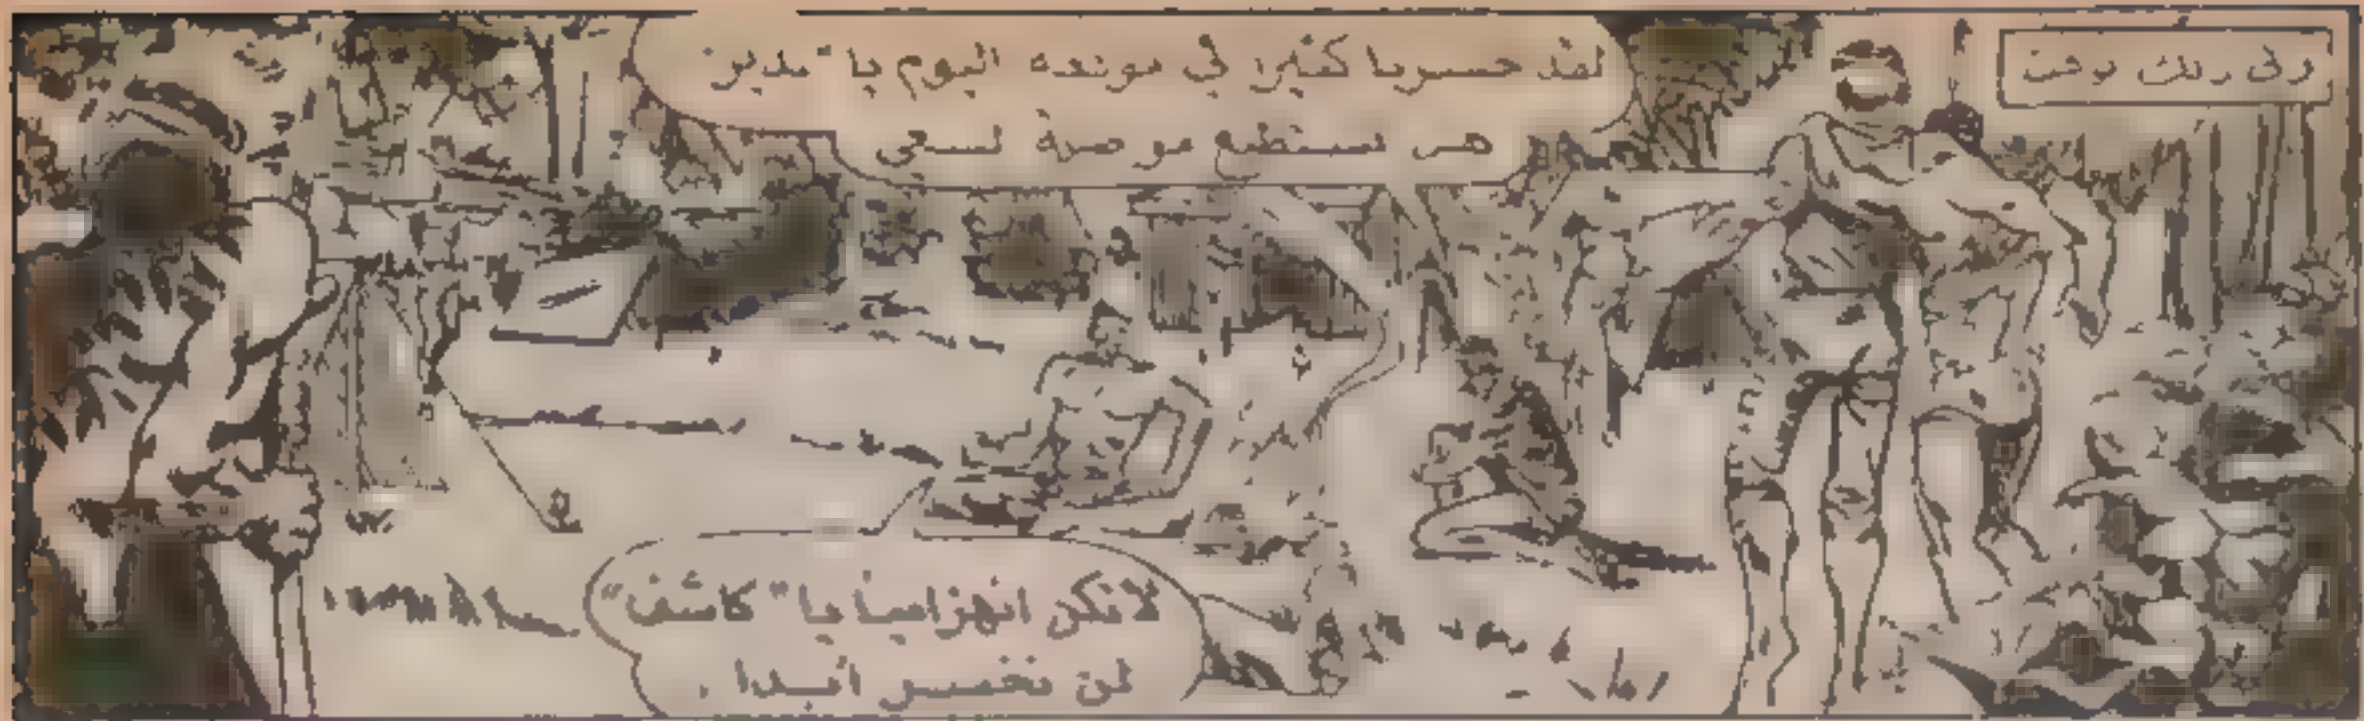 لقد خسرنا كثيرا في موقعة اليوم يا "مدبر"
هل نستطيع مواصلة لسعى
لا تكن انهزاميا يا "كاشف"
لن نخسر أبدا .